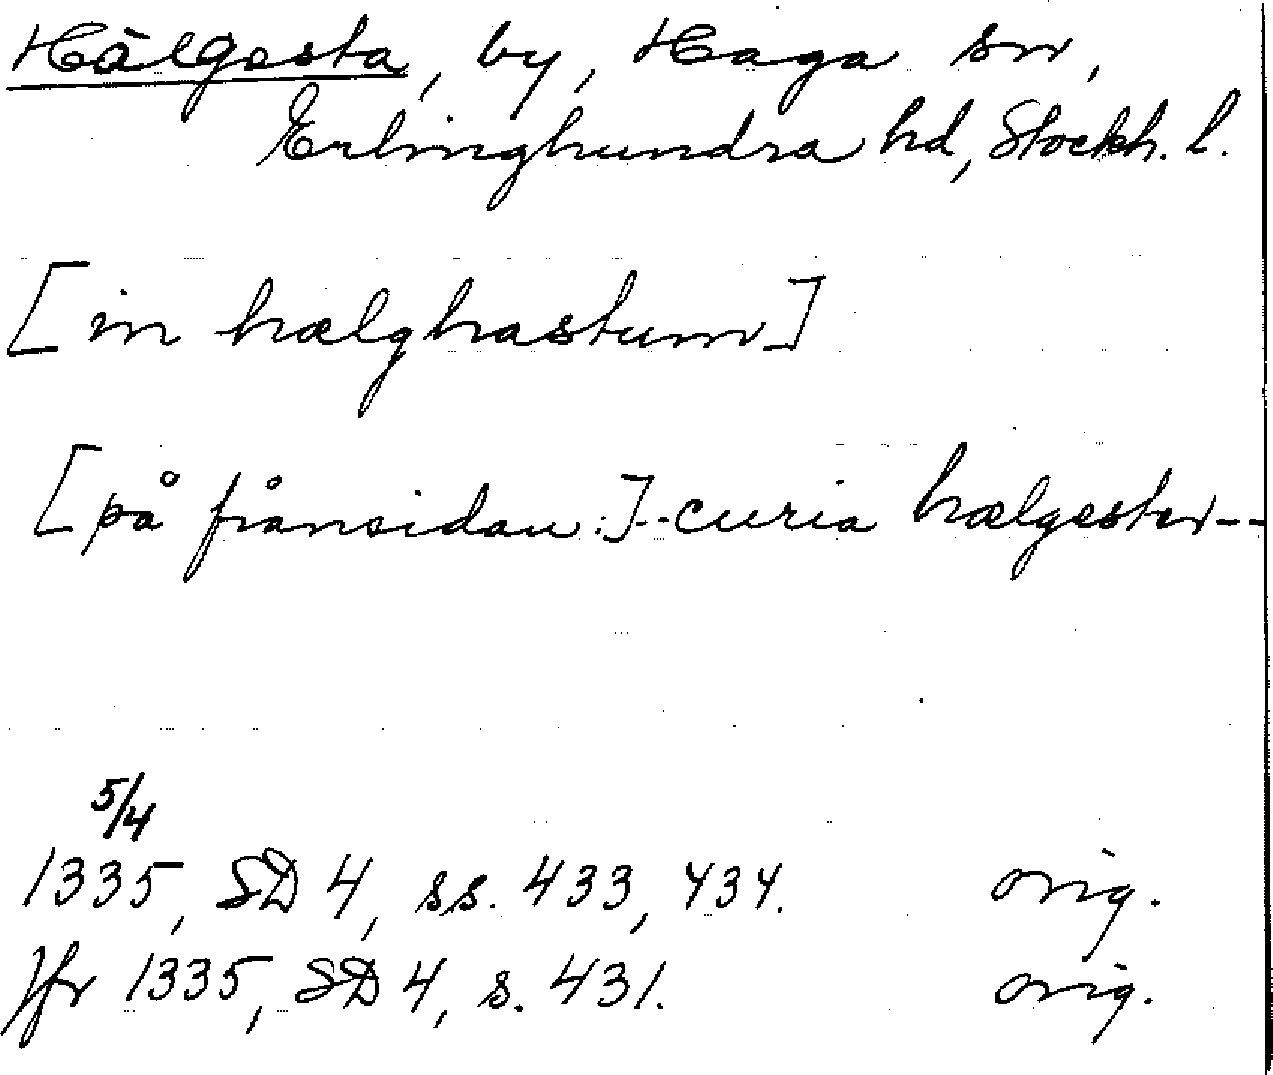 Hälgesta, by, Haga sn,
Erlinghundra hd, Stockh. l.
[in hælghastum]
[på frånsidan:]--curia hælgester--
5/4
1335, SD 4, ss. 433, 434. orig.
Jfr 1335, SD 4, s. 431. orig.